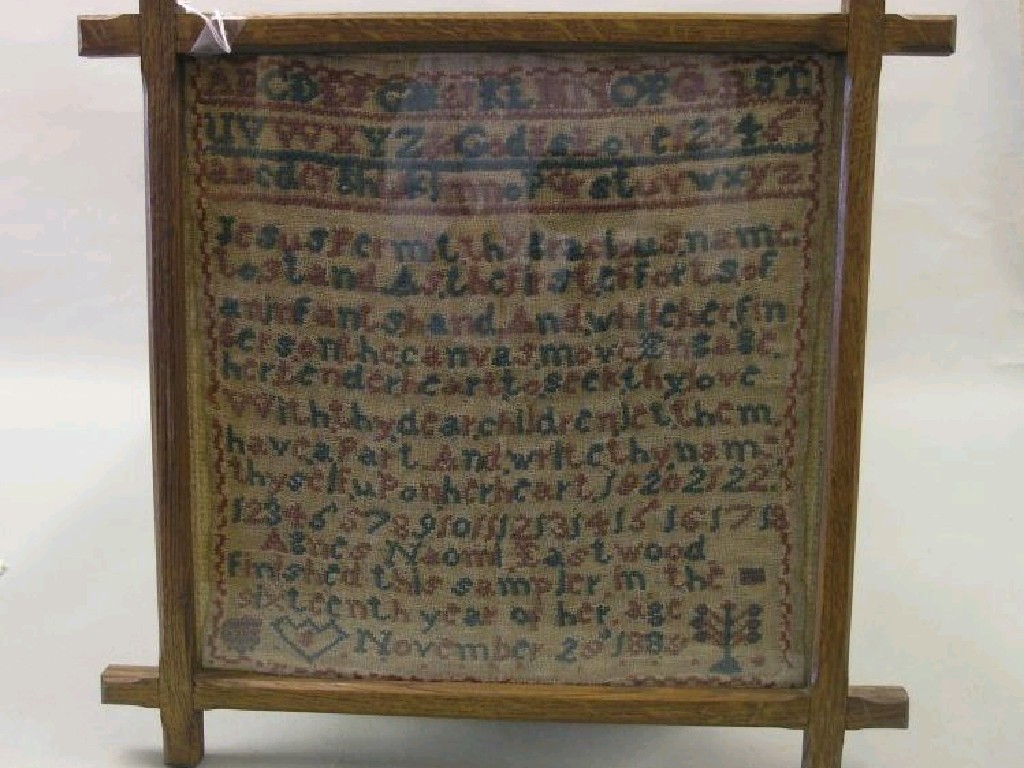 ABCDEFGHIJKLMNOPQRST.
UVWXYZ God is Love 123456
abcdefghijklmnopqrstuvwxyz
Jesus permit thy gracious name.
to stand. As the first efforts of
an infants hand. And while her fin
gers on the canvas move Engage
her tender heart to seek thy love
With thy dear children let them
have a part And write thy name
thyself upon her heart, 19202122.
123456789101112131415161718
Agnes Naomi Eastwood
finished this sampler in the
sixteenth year of her age
November